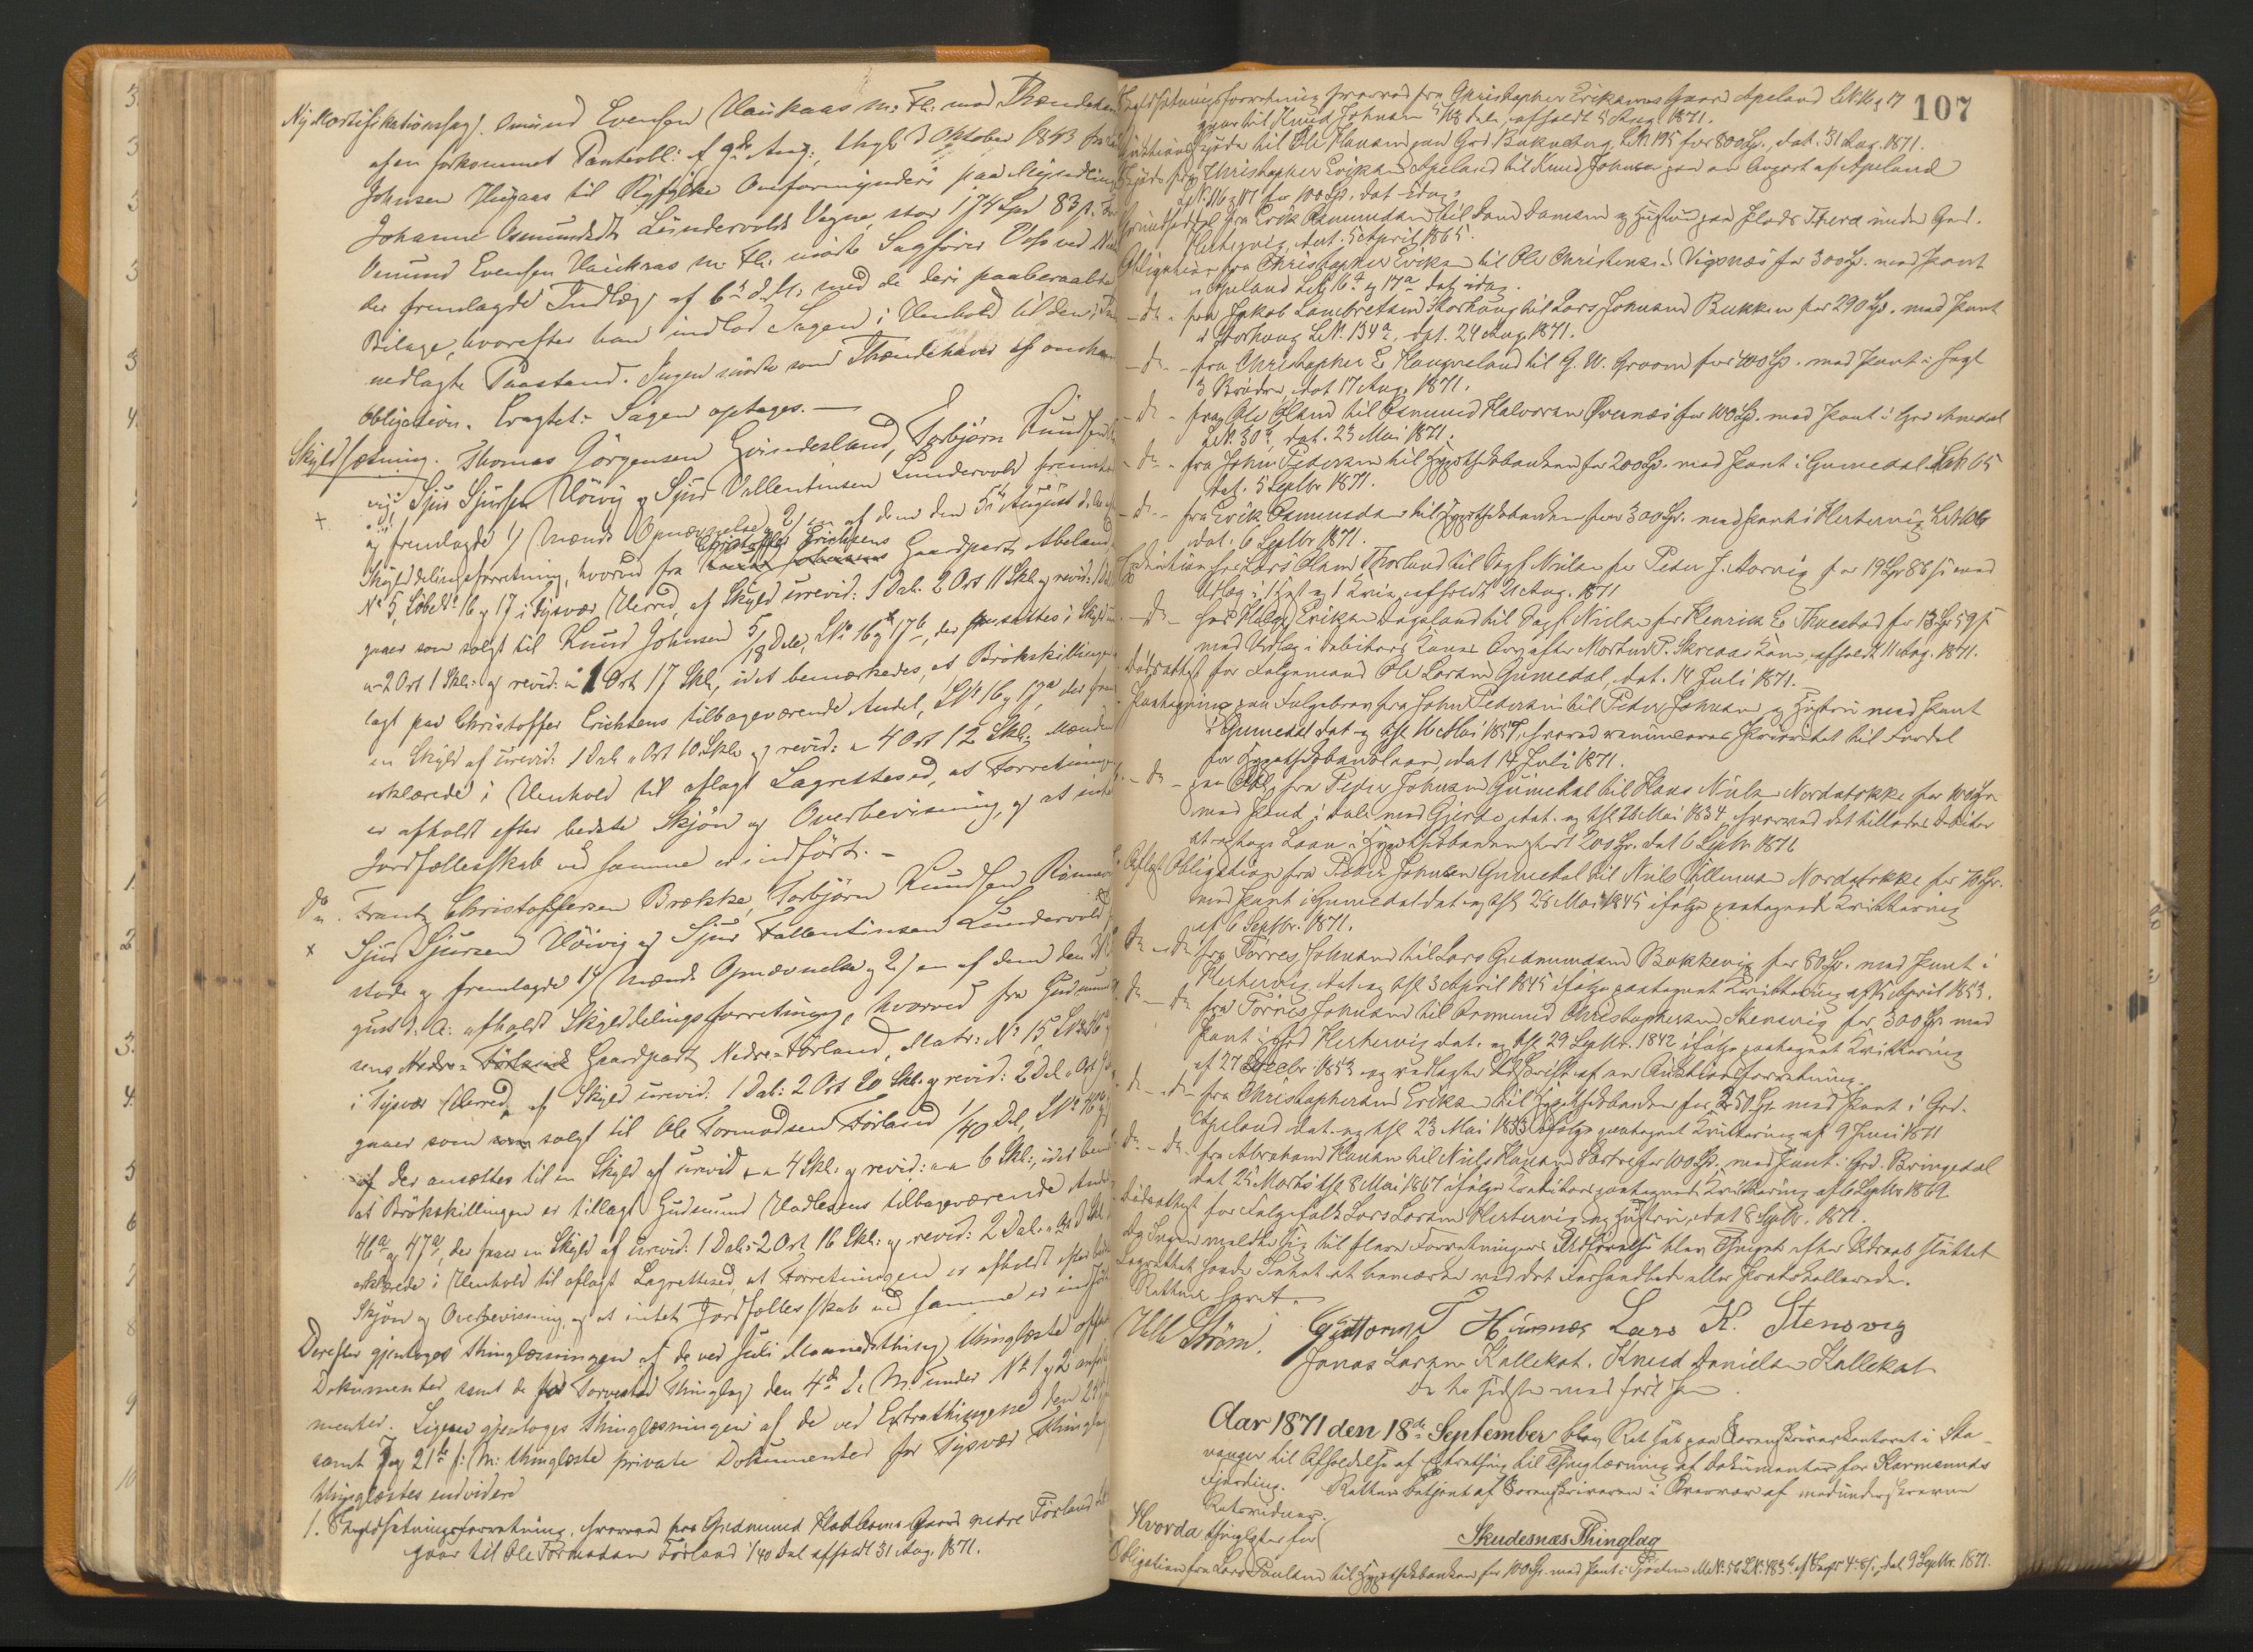 Ny Mortifikationssag. Omund Evensen Haukaas m: Fl: mod Ihændehaver
af en forkommet Panteobl: af 9de Aug:, thgl. 3 Oktober 1843 fra
Johnsen Haugaas til Ryfylke Overformynderi paa Myndling
Johanne Osmundsdtr Lundervolds Vegne, stor 174 Spd 83 s. For
Omund Evensen Haukaas m: Fl: mødte Sagfører Voss ved
der fremlagde Indlæg af 6te d. M. med de deri paaberaabte
Bilage, hvorefter han indlod Sagen i Henhold til den i
nedlagte Paastand. Ingen mødte som Ihændehaver af omhand
Obligation. Eragtet: Sagen optages. —
Skyldsætning. Thomas Jörgensen Gründesland, Torbjörn Knudsen
vig, Sjur Sjursen Höivig og Sjur Vallentinsen Lundervold fremstod
og fremlagde 1) Mænds Opnævnelse og 2) en af dem den 5te August d. A.
Skylddelingsforretning, hvorved fra Christoffer Erichsens Gaardpart Apeland,
No 5, Löbe No 16 og 17 i Tysvær Herred, af Skyld urevid: 1 Dal: 2 Ort 11 Skl. og revid: 1
gaaer som solgt til Knud Johnsen 5/18 Dele, LNo 16b og 17b, der ansættes i Skyld
" 2 Ort 1 Skl: og revid: " 1 Ort 17 Skl, idet bemærkedes, at Brökskillingen
lagt paa Christoffer Erichsens tilbageværende Andel, LNo 16a og 17a, der faaer
en Skyld af urevid: 1 Dal " Ort 10 Skl. og revid: " 4 Ort 12 Skl; Mændene
erklærede i Henhold til aflagt Lagrettesed, at Forretningen
er afholdt efter bedste Skjön og Overbevisning, og at intet
Jordfællesskab ved samme er indfört. —
Do. Frantz Christoffersen Brække, Torbjörn Knudsen
Sjur Sjursen Höivig og Sjur Vallentinsen Lundervold
stode og fremlagde 1) Mænds Opnævnelse og 2) en af dem den 31
gust d: A: afholdt Skylddelingsforretning, hvorved fra Gudmund
sens Nedre-Förland Gaardpart Nedre-Förland, Matr: No 15, LNo 46
i Tysvær Herred, af Skyld urevid: 1 Dal: 2 Ort 20 Skl. og revid: 2 Dal " Ort
gaaer som solgt til Ole Tormodsen Förland 1/40 Del, LNo 46b
der ansættes til en Skyld af urevid " " 4 Skl: og revid: " " 6 Skl:, idet bem
at Brökskillingen er tillagt Gudmund Hadlesens tilbageværende Andel
46a og 47a, der faaer en Skyld af urevid: 1 Dal: 2 Ort 16 Skl: og revid: 2 Dal: " Ort
erklærede i Henhold til aflagt Lagrettesed, at Forretningen er afholdt efter bedste
Skjön og Overbevisning, og at intet Jordfællesskab ved samme er indfört
Derefter gjentoges thinglæsningen af de ved Juli Maanedsthing thinglæste offentl
Dokumenter samt de for Torvestad Thinglag den 4de d. M. under No 1 og 2 anförte
menter. Ligesaa gjentoges thinglæsningen af de ved Extrathingene den 24
samt 7 og 21de f: M: thinglæste private Dokumenter for Tysvær Thinglag
thinglæstes endvidere
1. Skyldsætningsforretning, hvorved fra Gudmund Hadlesens Gaard nedre Förland
gaar til Ole Tormodsen Förland 1/40 Del afholdt 31 Aug. 1871.
107
Skyldsætningsforretning hvorved fra Christopher Eriksens Gaard Apeland LNo. 16 og 17
gaar til Knud Johnsen 5/18 Dele, afholdt 5 Aug. 1871.
Auktionsskjøde til Ole Hansen paa Grd. Bukneberg, LNo. 195 for 800 Sp., dat. 31 Aug. 1871.
Skjøde fra Christopher Eriksen Apeland til Knud Johnsen paa en Gaardpart af Apeland
LNo. 16 og 17 for 100 Sp. dat. Idag.
Grundseddel fra Erik Osmundsen til Daniel Danielsen og Hustru paa Plads Thera under Grd.
Hertervig, dat. 5 April 1865.
Obligation fra Christopher Eriksen til Ole Christensen Vigsnæs for 300 Sp. med Pant
i Apeland LNo 16a og 17a dat. idag.
- do - fra Jakob Lambretsen Storhaug til Lars Johnsen Bukken for 290 Sp. med Pant
i Storhaug LNo. 134a, dat. 24 Aug 1871.
- do - fra Christopher E. Haugvaland til G. W. Groom for 400 Sp. med Pant i Jagt
3 Brødre, dat 17 Aug. 1871.
- do - fra Ole Oland til Osmund Halvorsen Øvernæs for 100 Sp. med Pant i Grd. Amdal
LNo. 30a, dat. 23 Mai 1871.
- do - fra John Pedersen til Hypothekbanken for 200 Sp. med Pant i Gumedal LNo. 65
dat. 5 Septbr 1871.
- do - fra Erik Osmundsen til Hypothekbanken for 300 Sp. med Pant i Hertervig LNo.
dat. 6 Septbr 1871.
Exekution hos Lars Olsen Thorland til Sagf. Nielsen for Peder J. Aarvig for 19 Sp 86 s med
Udlæg i 1 Hest og 1 Kvie, afholdt 21 Aug. 1871
- do - hos Helge Eriksen Dagsland til Sagf. Nielsen for Henrik E. Thuestad for 13 Sp 59 s
med Udlæg i Debitors Kones Arv efter Morten P. Skreaas Kone, afholdt 11 Aug. 1871.
Dødsattest for Følgemand Ole Larsen Gumedal, dat. 14 Juli 1871.
Paategning paa Følgebrev fra John Pedersen til Peder Johnsen og Hustru med Pant
i Gumedal dat. og thl. 16 Mai 1857, hvorved renunceres Prioritet til Fordel
for Hypothekbanklaan, dat 14 Juli 1871.
- do - paa Obl. fra Peder Johnsen Gumedal til Hans Nilsen Nordstokke for 100 Sp.
med Pant i Dale med Gjerde, dat. og thl 26 Mai 1834, hvorved det tillades Debitor
at optage Laan i Hypothekbanken stort 200 Sp. dat 6 Septbr 1871
Aflyst Obligation fra Peder Johnsen Gumedal til Niels Tillesen Nordstokke for 70 Sp.
med Pant i Gumedal dat. og thl. 26 Mai 1845 ifølge paategnede Kvittering
af 6 Septbr. 1871.
do - do fra Tørres Johnsen til Lars Gudmundsen Bokkevig for 80 Sp. med Pant i
Hertervig dat. og thl 3 April 1845 ifølge paategnet Kvittering af 15 April 1853.
do - do fra Tørres Johnsen til Osmund Christophersen Stensvig for 300 Sp. med
Pant i Grd Hertervig dat. og thl 29 Septbr. 1842 ifølge paategnet Kvittering
af 27 Decbr 1853 og vedlagte Udskrift af en Auktionsforretning.
do - do - fra Christophersen Eriksen til Hypothekbanken for 250 Sp. med Pant i Grd.
Apeland dat. og thl 23 Mai 1853 ifølge paategnet Kvittering af 9 Juni 1871
do - do - fra Abraham Hansen til Niels Hansen Sørtre for 100 Sp. med Pant i Grd. Bringedal
dat 25 Marts thl 8 Mai 1867 ifølge Kreditors paategnede Kvittering af 6 Septbr 1869
Dødsattest for Følgefolk Lars Larsen Hertervig og Hustru, dat 8 Septbr. 1871.
Da Ingen meldte sig til flere Forretningers Udførelse blev Thinget efter Udraab sluttet
Lagrettet havde Intet at bemærke ved det Forhandlede eller Protokollerede.
Retten hævet.
Ulle Strøm. Guttorm T Hinnæs Lars K. Stensvig
Jonas Larsen Kallekot. Knud Danielsen Kallekot
De to sidste med ført Pen.
Aar 1871 den 18de September blev Ret sat paa Sorenskriverkontoret i Sta-
vanger til Afholdelse af Extrathing til Thinglæsning af Dokumenter for Karmsunds
Fjerding. Retten betjent af Sorenskriveren i Overvær af medunderskrevne
Retsvidner.
Hvorda thinglæstes for
Skudesnæs Thinglag
Obligation fra Lars Paulsen til Hypothekbanken for 100 Sp. med Pant i Sjøstrøm MNo. 56 LNo. 183 dat 9 Septbr. 1871.